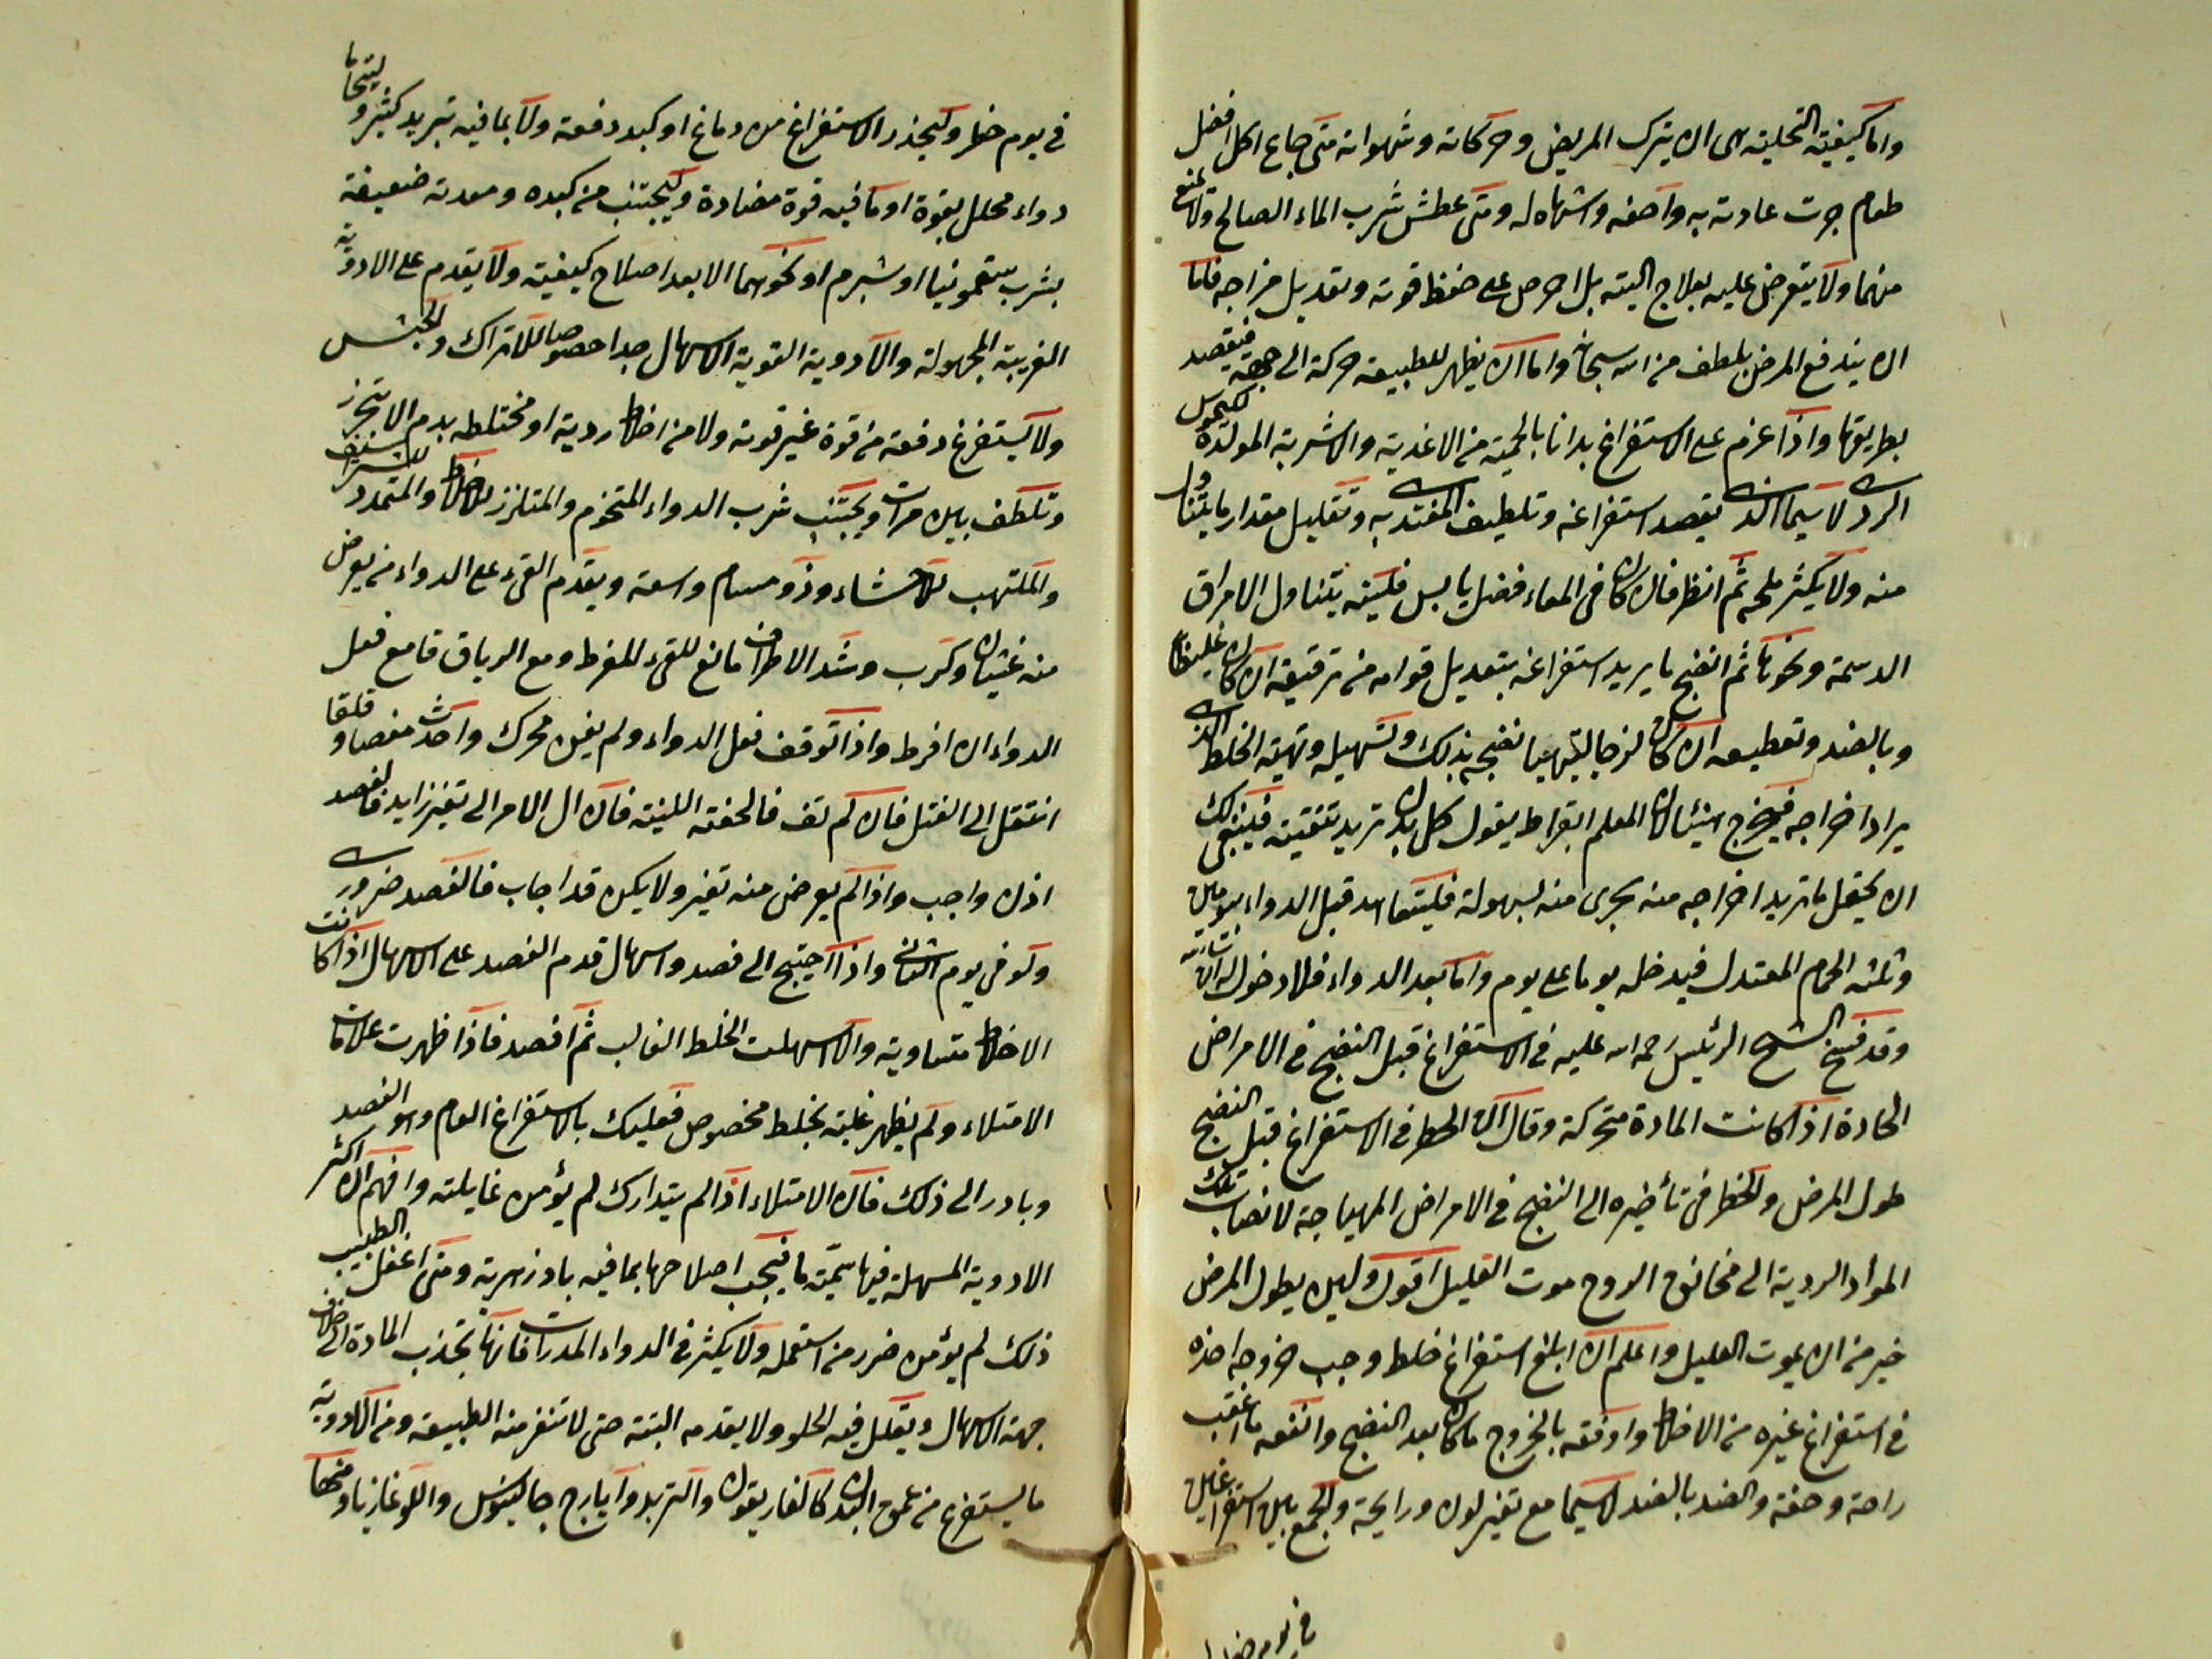 واما كيفية التخلية هى ان يترك المريض وحركاته وشهواته متى جاع اكل افضل
طعام جرت عادته به واصفه واشتهاه له ومتى عطش شرب الماء الصالح ولا يمنع
منهما ولا يتعرض عليه بعلاج البتة بل احرص على حفظ قوته وتعديل مزاجه فاما
ان يندفع المرض بلطف من الله سبحانه واما ان يظهر للطبيعة حركة الى جهة فيقصد
بطريقها واذا عزم على الاستفراغ بدانا بالحمية من الاغذية والاشربة المولدة لكيموس
الردى لا سيما الذى يقصد استفراغه وتلطيف المغتدى به وتقليل مقدار ما يتناول
منه ولا يكثر ملحه ثم انظر فان كان فى المعاء فضل يابس فلينه بتناول الامراق
الدسمة ونحوها ثم انضج ما يريد استفراغه بتعديل قوامه من ترقيقه ان كان غليظا
وبالضد وتقطيعه ان كان لزجا ليتهيا نضجه بذلك وتسهيله وتهيئة الخلط الذى
يراد اخراجه فيخرج المعلم ابقراط يقول كل بدن تريد تنقيته فينبغى لك
ان يجعل ما تريد اخراجه منه يجرى منه بسهولة فليتعاهد قبل الدواء بيومين
وثلثه الحمام المعتدل فيدخله يوما على يوم واما بعد الدواء فلا دخول له الا
وقد فسح الشيخ الرئيس رحمه الله عليه فى الاستفراغ قبل النضج فى الامراض
الحادة اذا كانت المادة متحركة وقال ان الخطر فى الاستفراغ قبل النضج
طول المرض والخطر فى تأخيره الى النضج فى الامراض المهياجة لانصاب تلك
المواد الردية الى مخانق الروح موت العليل اقول ولين يطول المرض
خير من ان يموت العليل واعلم ان ابلغ استفراغ خلط وجب خروجه اخذه
فى استفراغ غيره من الاخلاط واوفقه بالخروج ما كان بعد النضج وانفعه ما اعقب
راحة وخفة والضد بالضد لا سيما مع تغير لون ورايحة والجمع بين استفراغين
فى يوم خطر
فى يوم خطر وليحذر الاستفراغ من دماغ او كبد دفعة ولا بما فيه تبريد كثير وليتحاما
دواء محلل بقوة او ما فيه قوة مضادة وليجتنب من كبده ومعدته ضعيفة
بشرب سقمونيا او شبرم او نحوهما الا بعد اصلاح كيفيته ولا يقدم على الادوية
الغريبة المجهولة والادوية القوية الاسهال جدا خصوصا للاتراك والحبش
ولا يستفرغ دفعة من قوة غير قوته ولا من اخلاط ردية او مختلطه بدم الا بتحرز
وتلطف بين مرات ويجتنب شرب الدواء المتخوم والمتلزز الاخلاط والمتمدد الشراسيف
والملتهب الاحشاء وذو مسام واسعة ويقدم القىء على الدواء من يعرض
منه غثيان وكرب وشد الاطراف مانع للقىء المفرط ومع الرباق قامع فعل
الدواء ان افرط واذا توقف فعل الدواء ولم يغن محرك واحدث مغصا وقلقا
انتقل الى الفتل فان لم تف فالحقنة اللينة فان ال الامر الى تغير زايد فالفصد
اذن واجب واذا لم يعرض منه تغير ولا يكن قد اجاب فالفصد ضرورى
ولو فى يوم الثانى واذا احتيج الى فصد واسهال قدم الفصد على الاسهال اذا كانت
الاخلاط متساوية والا اسهلت الخلط الغالب ثم افصد فاذا ظهرت علامات
الامتلاء ولم يظهر غلبة بخلط مخصوص فعليك بالاستفراغ العام وهو الفصد
وبادر الى ذلك فان الامتلاء اذا لم يتدارك لم يؤمن غايلته وافهم ان اكثر
الادوية المسهلة فيها سمية ما فيجب اصلاحها بما فيه بادزهرية ومتى اغفل الطبيب
ذلك لم يؤمن ضرر من استعمله ولا يكثر فى الدواء المدرات فانها تجذب المادة الى خلاف
جهة الاسهال ويقلل فيه الحلو ولا يقدمه البتة حتى لا تنفر منه الطبيعة ومن الادوية
ما يستفرغ من عمق البدن كالغاريقون والتربد وايارج جالينوس واللوغازيا ومنها